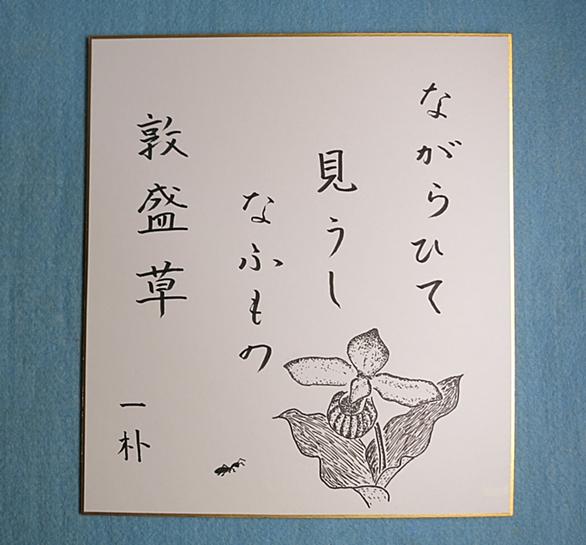 ながらひて
見うし
なふもの
敦盛草
一朴